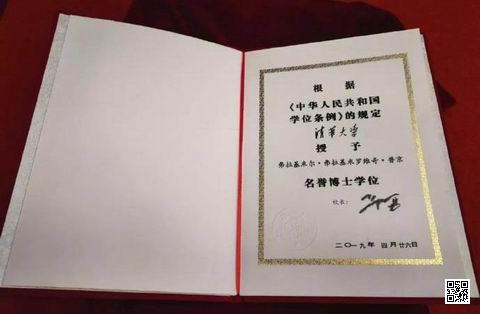 根据
《中华人民共和国
学位条例》的规定
清华大学
授予
弗拉基米尔·弗拉基米罗维奇·普京
名誉博士学位
校长：
二〇一九年 四月 廿六日